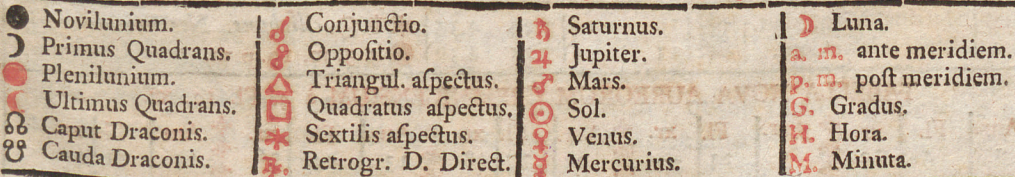 ● Novilunium.
☽ Primus Quadrans.
● Plenilunium.
☾ Ultimus Quadrans.
☊ Caput Draconis.
☋ Cauda Draconis.
☌ Conjunctio.
☍ Oppoſitio.
△ Triangul. aſpectus.
□ Quadratus aſpectus.
⚹ Sextilis aſpectus.
℞. Retrogr. D. Direct.
♄ Saturnus.
♃ Jupiter.
♂ Mars.
☉ Sol.
♀ Venus.
☿ Mercurius.
☽ Luna.
a. m. ante meridiem.
p. m. poſt meridiem.
G. Gradus.
H. Hora.
M. Minuta.